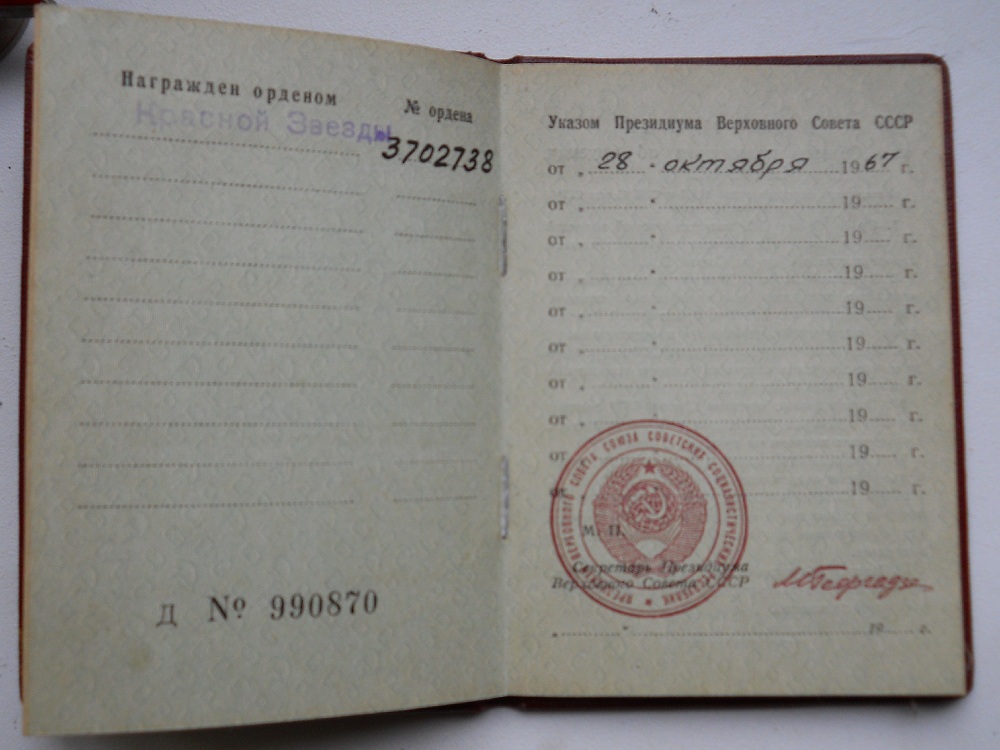 Награжден орденом
№ ордена
Красной Звезды
3702738
Д № 990870
Указом Президиума Верховного Совета СССР
от „ 28 " октября 1967 г.
от „ " 19 г.
от „ " 19 г.
от „ " 19 г.
от „ " 19 г.
от „ " 19 г.
от „ " 19 г.
от „ " 19 г.
от „ " 19 г.
от „ " 19 г.
М. П.
Секретарь Президиума
Верховного Совета СССР
„ " 19 г.
ВЕРХОВНОГО СОВЕТА СОЮЗА СОВЕТСКИХ СОЦИАЛИСТИЧЕСКИХ РЕСПУБЛИК